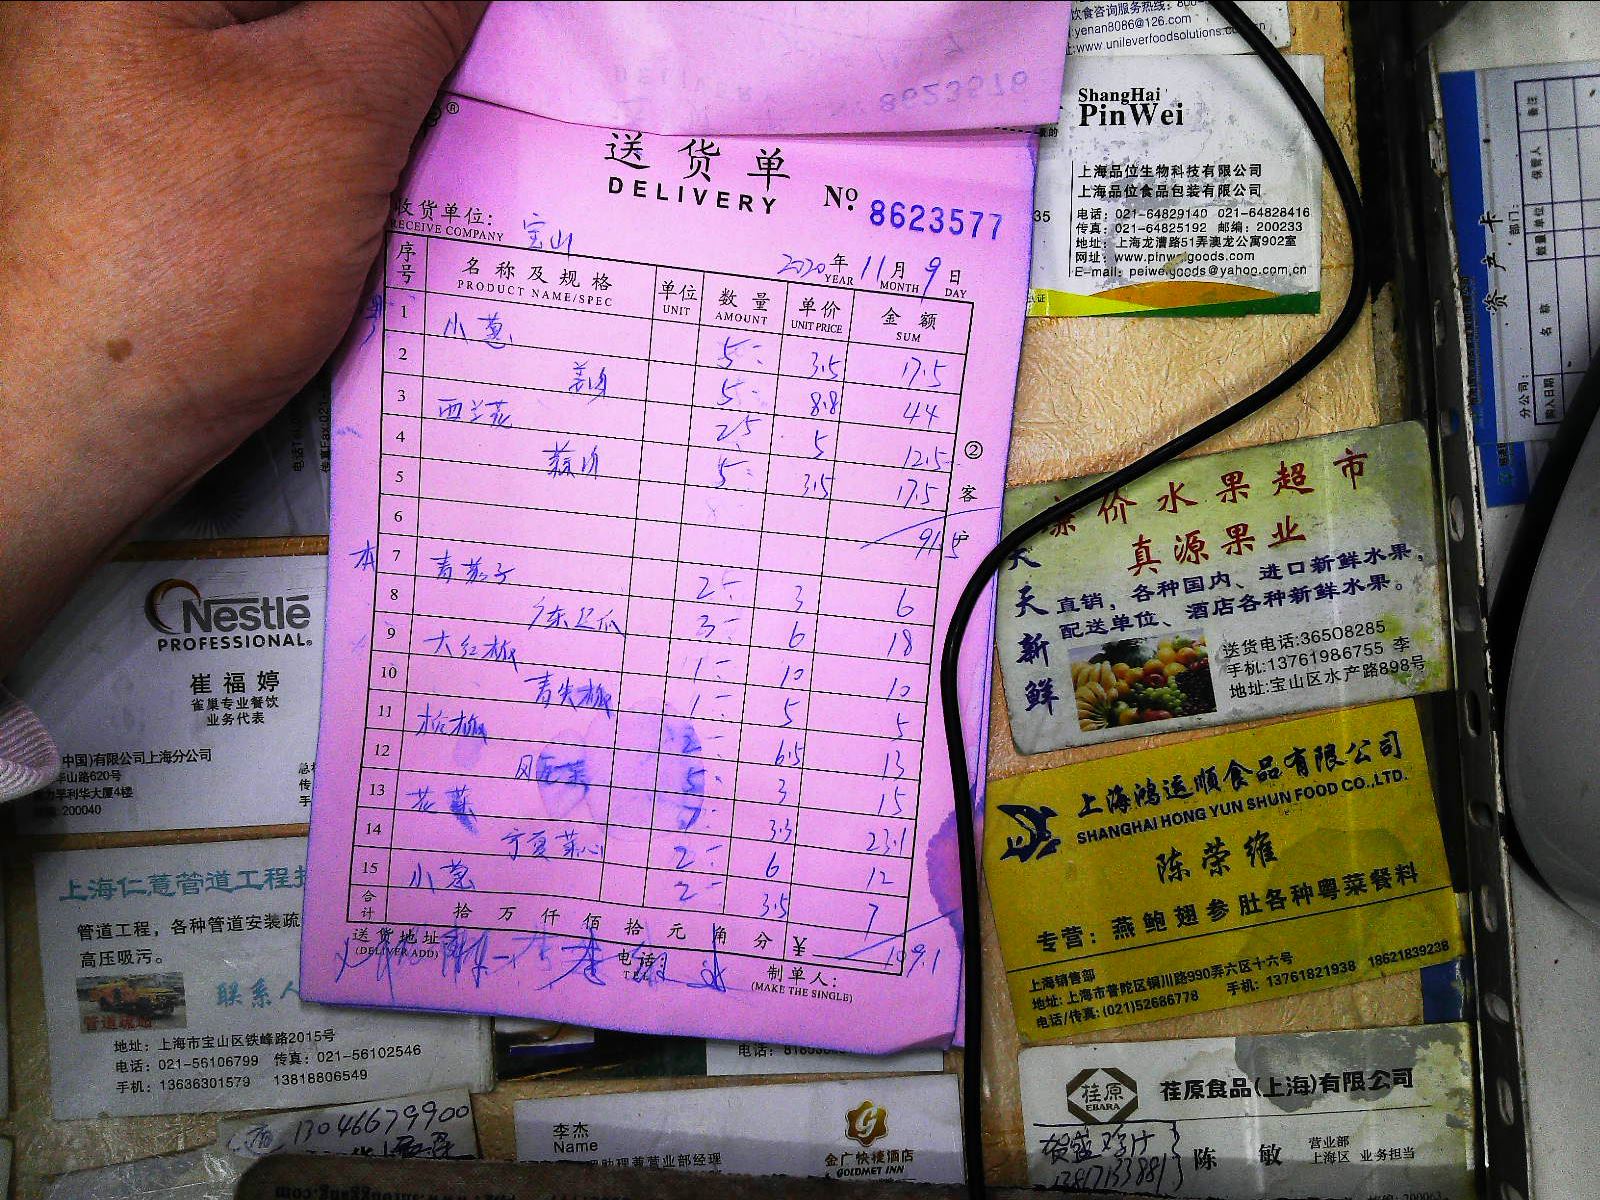 饮食咨询服务热线: 800-
yenan8086@126.com
www.unileverfoodsolutions.co
8623576
ShangHai
PinWei
上海品位生物科技有限公司
上海品位食品包装有限公司
电话: 021-64829140 021-64828416
传真: 021-64825192 邮编: 200233
地址: 上海龙漕路51弄澳龙公寓902室
网址: www.pinweigoods.com
E-mail: peiweigoods@yahoo.com.cn
送货单
DELIVERY
No. 8623577
收货单位: 宝山
RECEIVE COMPANY
2020年 11月 9日
YEAR MONTH DAY
序号 名称及规格 单位 数量 单价 金额
PRODUCT NAME/SPEC UNIT AMOUNT UNIT PRICE SUM
1 小葱 5 3.5 17.5
2 姜肉 5 8.8 44
3 西兰花 2.5 5 12.5
4 蒜肉 5 3.5 17.5
5 91.5
6
本
7 青茄子 2 3 6
8 广东丝瓜 3 6 18
9 大红椒 1 10 10
10 青尖椒 1 5 5
11 杭椒 2 6.5 13
12 5 3 15
13 花菜 7 3.3 23.1
14 宁夏菜心 2 6 12
15 小葱 2 3.5 7
合计 拾 万 仟 佰 拾 元 角 分 ¥ 109.1
送货地址
(DELIVER ADD)
电话:
TEL
制单人:
(MAKE THE SINGLE)
② 客户
资产卡
部门:
保管人
备注
数量
单位
名称
分公司:
购入日期
价水果超市
真源果业
天天新鲜
直销,各种国内、进口新鲜水果,
配送单位、酒店各种新鲜水果。
送货电话:36508285
手机:13761986755 李
地址:宝山区水产路898号
Nestlé
PROFESSIONAL
崔福婷
雀巢专业餐饮
业务代表
中国)有限公司上海分公司
华山路620号
利华大厦4楼
: 200040
上海鸿运顺食品有限公司
SHANGHAI HONG YUN SHUN FOOD CO.,LTD.
陈荣维
专营: 燕鲍翅参肚各种粤菜餐料
上海销售部
地址: 上海市普陀区铜川路990弄六区十六号
电话/传真: (021)52686778 手机: 13761821938 18621839238
上海仁薏管道工程
管道工程,各种管道安装疏
高压吸污。
联系人
管道疏通
地址: 上海市宝山区铁峰路2015号
电话: 021-56106799 传真: 021-56102546
手机: 13636301579 13818806549
13046679900
李杰
Name
助理兼营业部经理
金广快捷酒店
GOLDMET INN
荏原
EBARA
荏原食品(上海)有限公司
陈敏
营业部
上海区 业务担当
13817133881